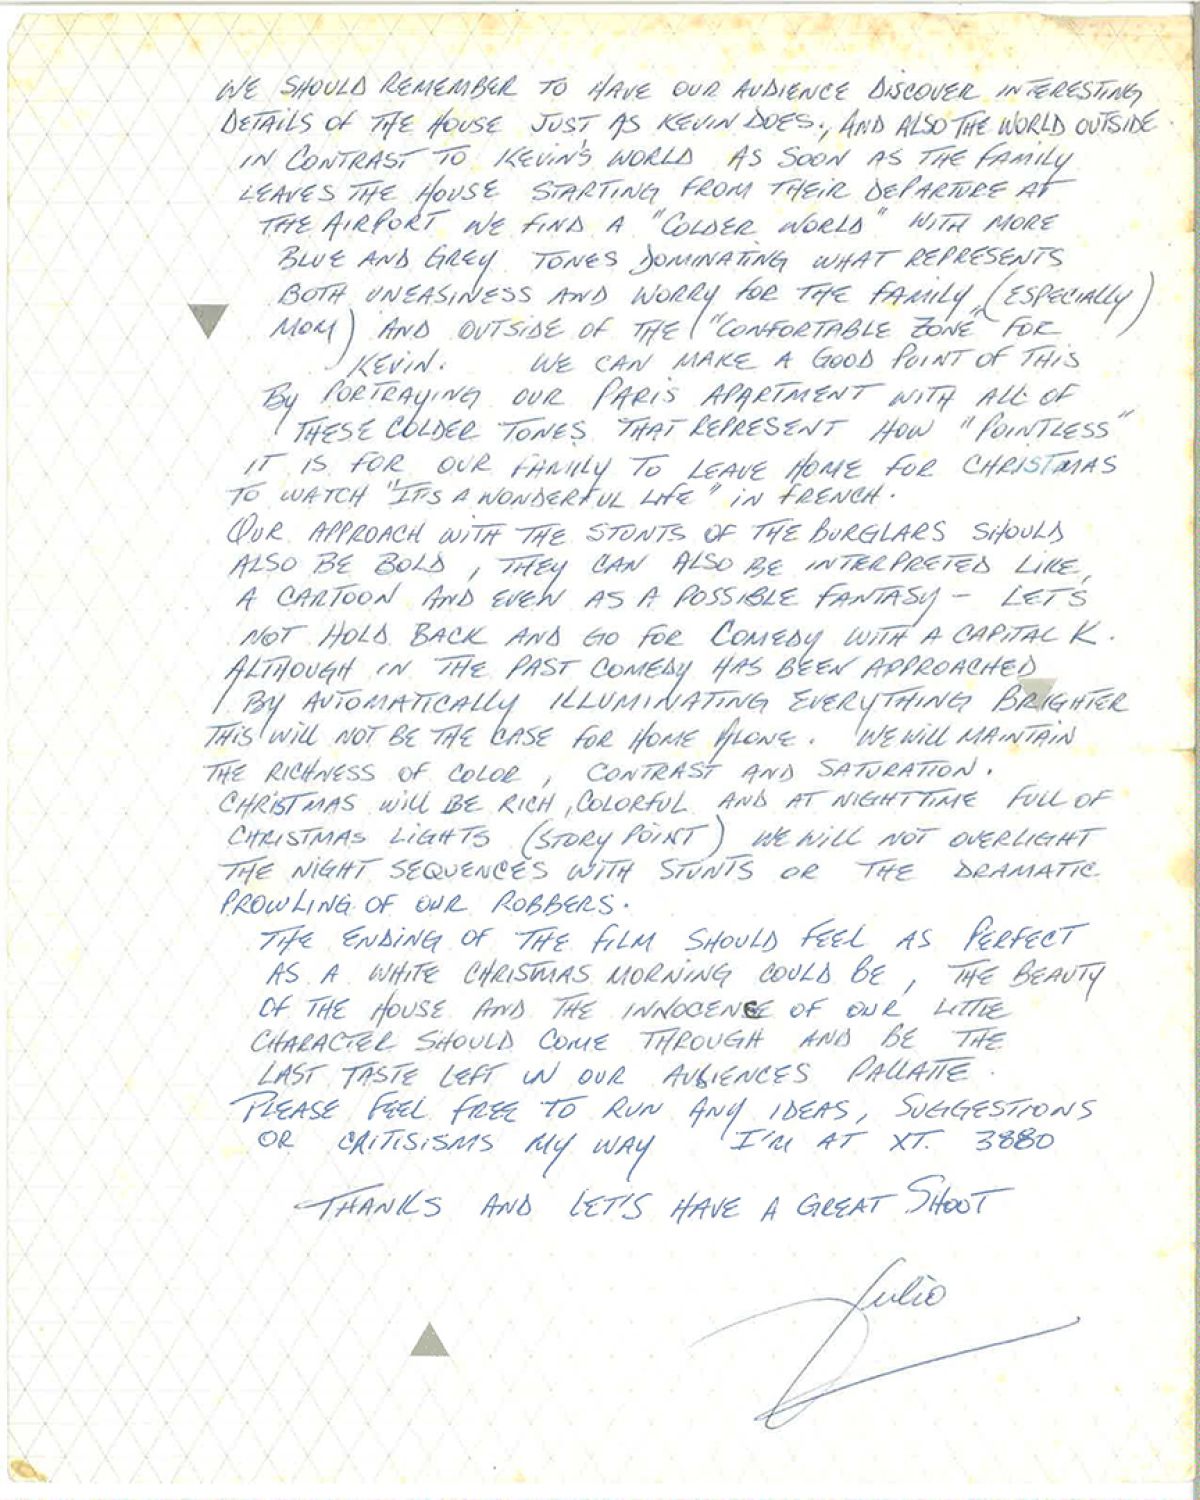 WE SHOULD REMEMBER TO HAVE OUR AUDIENCE DISCOVER INTERESTING
DETAILS OF THE HOUSE JUST AS KEVIN DOES., AND ALSO THE WORLD OUTSIDE
IN CONTRAST TO KEVIN'S WORLD AS SOON AS THE FAMILY
LEAVES THE HOUSE STARTING FROM THEIR DEPARTURE AT
THE AIRPORT WE FIND A "COLDER WORLD" WITH MORE
BLUE AND GREY TONES DOMINATING WHAT REPRESENTS
BOTH UNEASINESS AND WORRY FOR THE FAMILY, (ESPECIALLY)
MOM) AND OUTSIDE OF THE ("CONFORTABLE ZONE" FOR
KEVIN. WE CAN MAKE A GOOD POINT OF THIS
BY PORTRAYING OUR PARIS APARTMENT WITH ALL OF
THESE COLDER TONES THAT REPRESENT HOW "POINTLESS"
IT IS FOR OUR FAMILY TO LEAVE HOME FOR CHRISTMAS
TO WATCH "IT'S A WONDERFUL LIFE" IN FRENCH.
OUR APPROACH WITH THE STUNTS OF THE BURGLARS SHOULD
ALSO BE BOLD, THEY CAN ALSO BE INTERPRETED LIKE,
A CARTOON AND EVEN AS A POSSIBLE FANTASY - LET'S
NOT HOLD BACK AND GO FOR COMEDY WITH A CAPITAL K.
ALTHOUGH IN THE PAST COMEDY HAS BEEN APPROACHED
BY AUTOMATICALLY ILLUMINATING EVERYTHING BRIGHTER
THIS WILL NOT BE THE CASE FOR HOME ALONE. WE WILL MAINTAIN
THE RICHNESS OF COLOR, CONTRAST AND SATURATION.
CHRISTMAS WILL BE RICH, COLORFUL AND AT NIGHTTIME FULL OF
CHRISTMAS LIGHTS (STORY POINT) WE WILL NOT OVERLIGHT
THE NIGHT SEQUENCES WITH STUNTS OR THE DRAMATIC
PROWLING OF OUR ROBBERS.
THE ENDING OF THE FILM SHOULD FEEL AS PERFECT
AS A WHITE CHRISTMAS MORNING COULD BE, THE BEAUTY
OF THE HOUSE AND THE INNOCENCE OF OUR LITTLE
CHARACTER SHOULD COME THROUGH AND BE THE
LAST TASTE LEFT IN OUR AUDIENCES PALLATTE.
PLEASE FEEL FREE TO RUN ANY IDEAS, SUGGESTIONS
OR CRITISISMS MY WAY I'M AT XT. 3880
THANKS AND LET'S HAVE A GREAT SHOOT
Julio